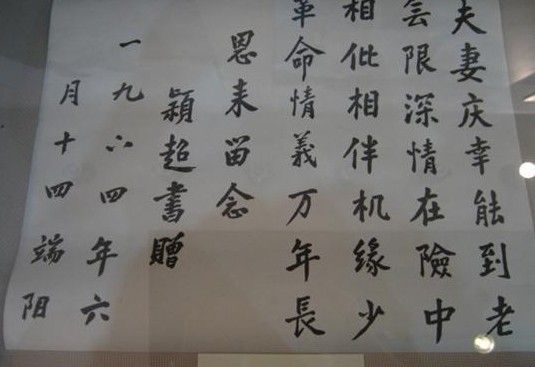 夫妻庆幸能到老
雲限深情在險中
相仳相伴机緣少
革命情義万年長
恩来留念
颖超書贈
一九六四年六
月十四端阳